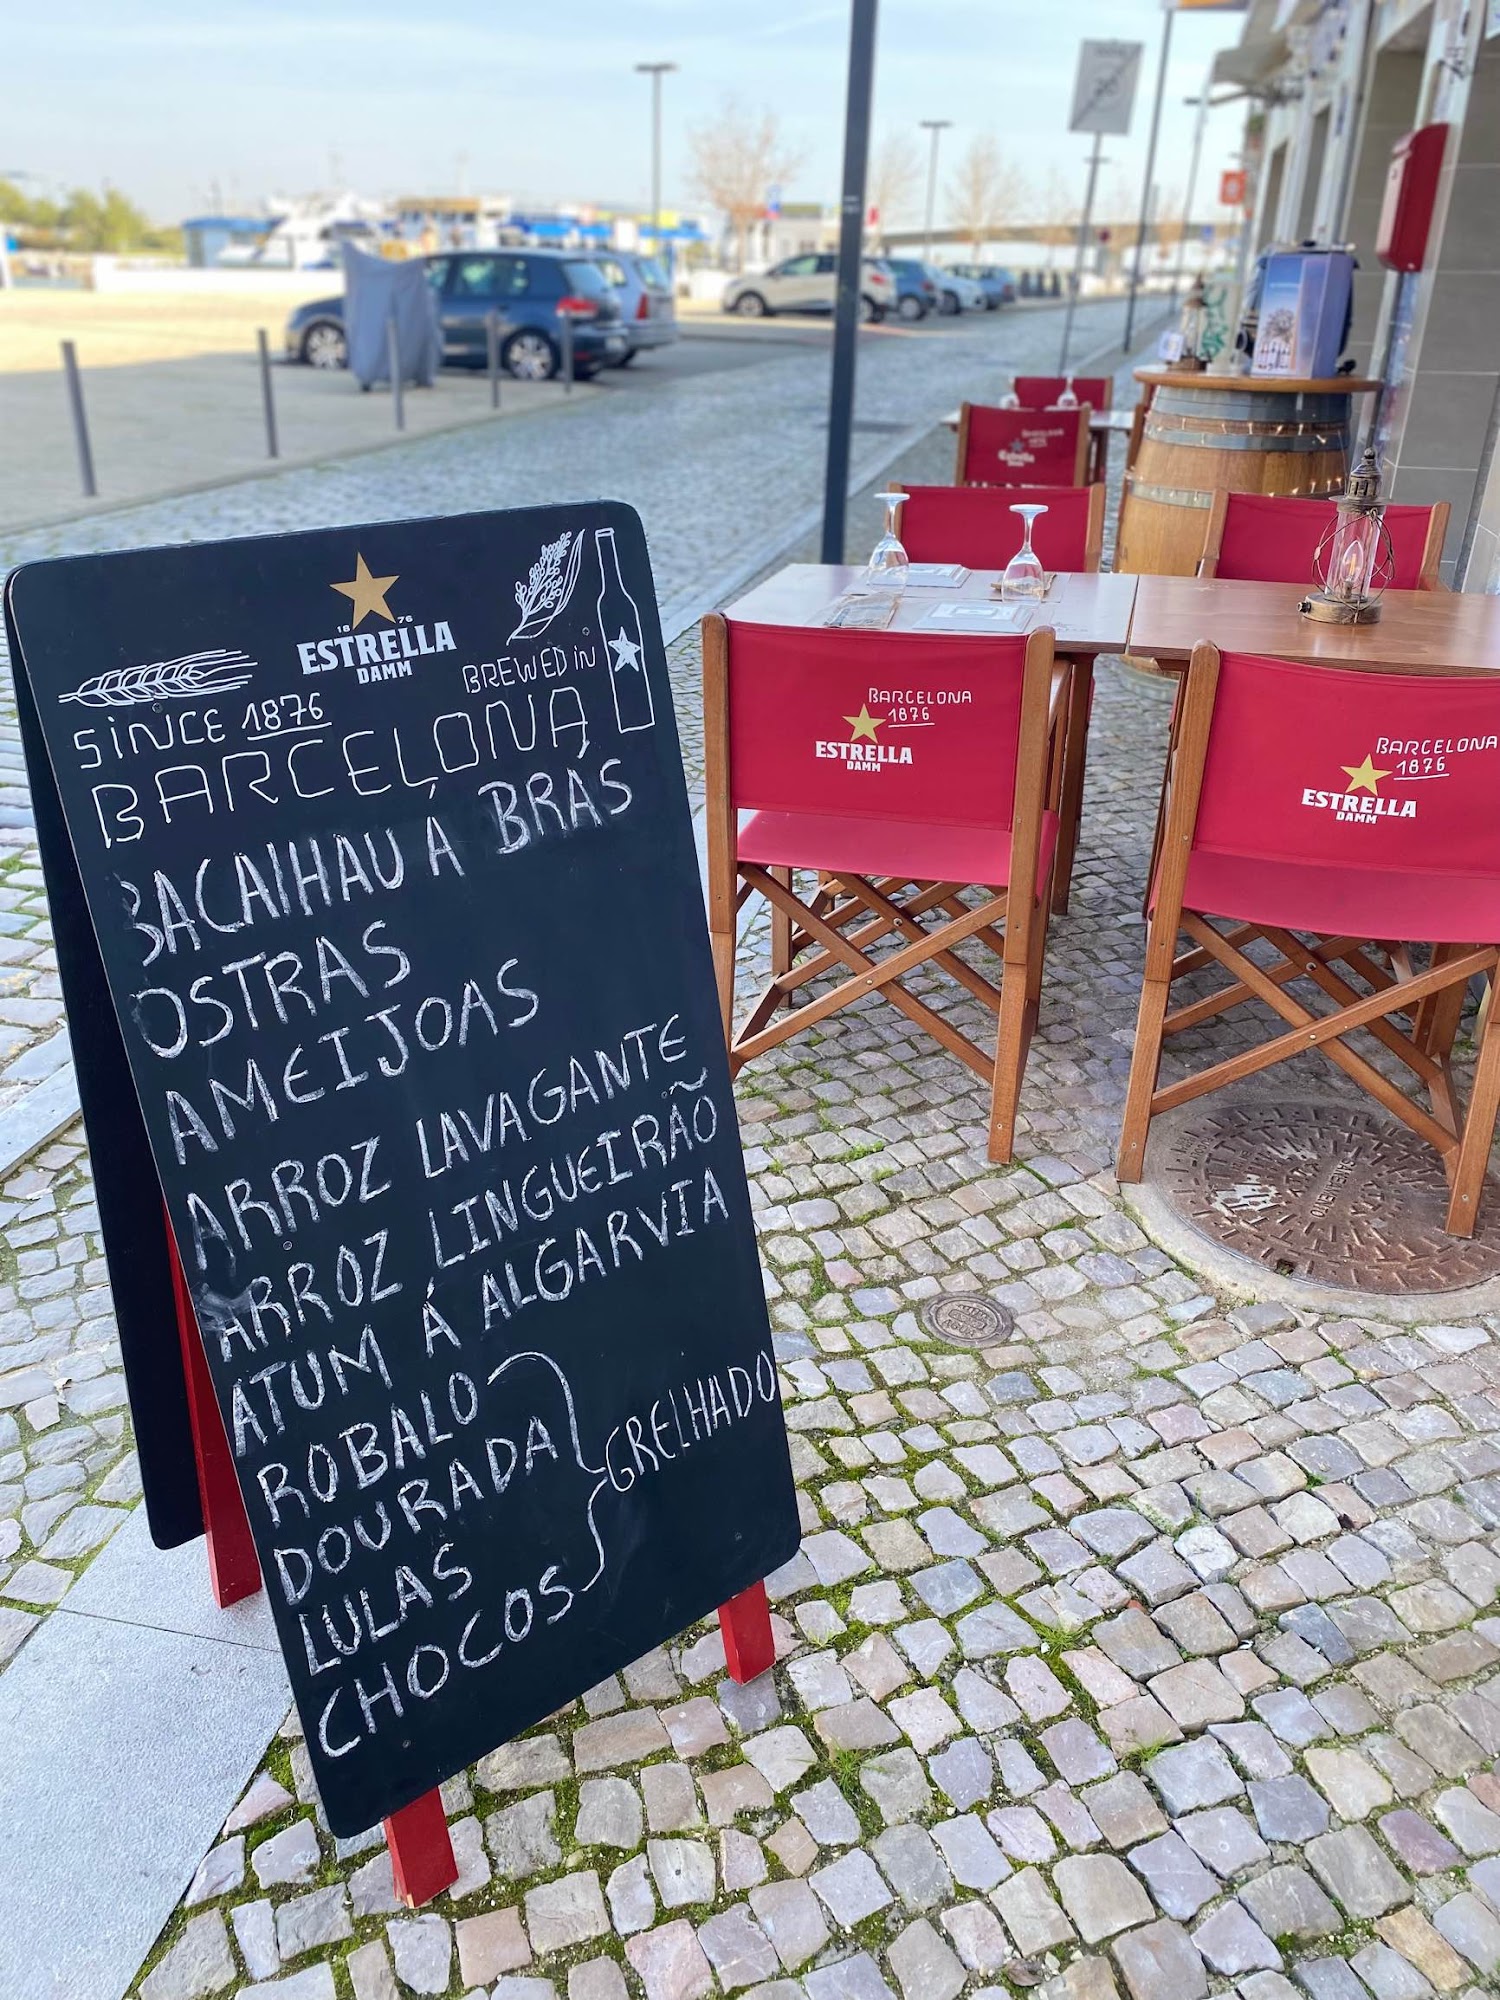 18 76
ESTRELLA
DAMM
SINCE 1876
BREWED IN
BARCELONA
BACAIHAU Á BRÁS
OSTRAS
AMEIJOAS
ARROZ LAVAGANTE
ARROZ LINGUEIRÃO
ATUM Á ALGARVIA
ROBALO
DOURADA
LULAS
CHOCOS
GRELHADO
BARCELONA
1876
ESTRELLA
DAMM
BARCELONA
1876
ESTRELLA
DAMM
BARCELONA
1876
Estrella
Damm
SANEAMENTO